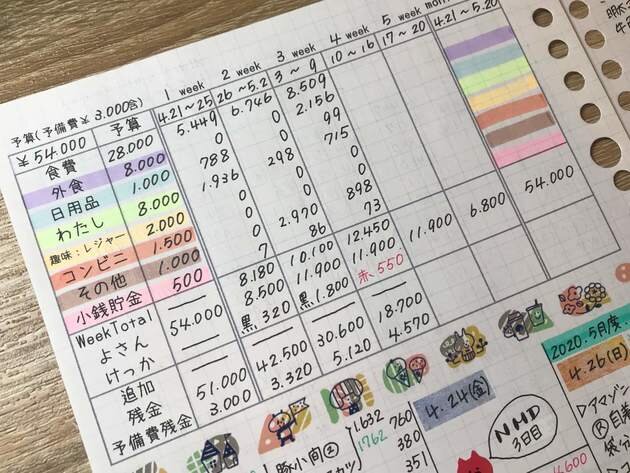 予算(予備費¥3.000含) 1 week 2 week 3 week 4 week 5 week
¥54.000 予算 4.21～25 26～5.2 3～9 10～16 17～20 4.21～5.20
食費 28.000 5.449 6.746 8.509
外食 8.000 0 0 2.156
日用品 1.000 788 0 99
わたし 8.000 1.936 298 715
趣味:レジャー 2.000 0 0 0
コンビニ 1.500 0 0 0
その他 1.000 0 2.970 898
小銭貯金 500 7 86 73
WeekTotal 8.180 10.100 12.450
よさん 54.000 8.500 11.900 11.900 11.900 6.800 54.000
けっか 黒 320 黒 1.800 赤 550
追加
残金 51.000 42.500 30.600 18.700
予備費残金 3.000 3.320 5.120 4.570
豚小間②
1.632 760
1762 380
351
4.24(金)
NHD
3日目
2020.5月度
4.26(日)
▷アマゾン